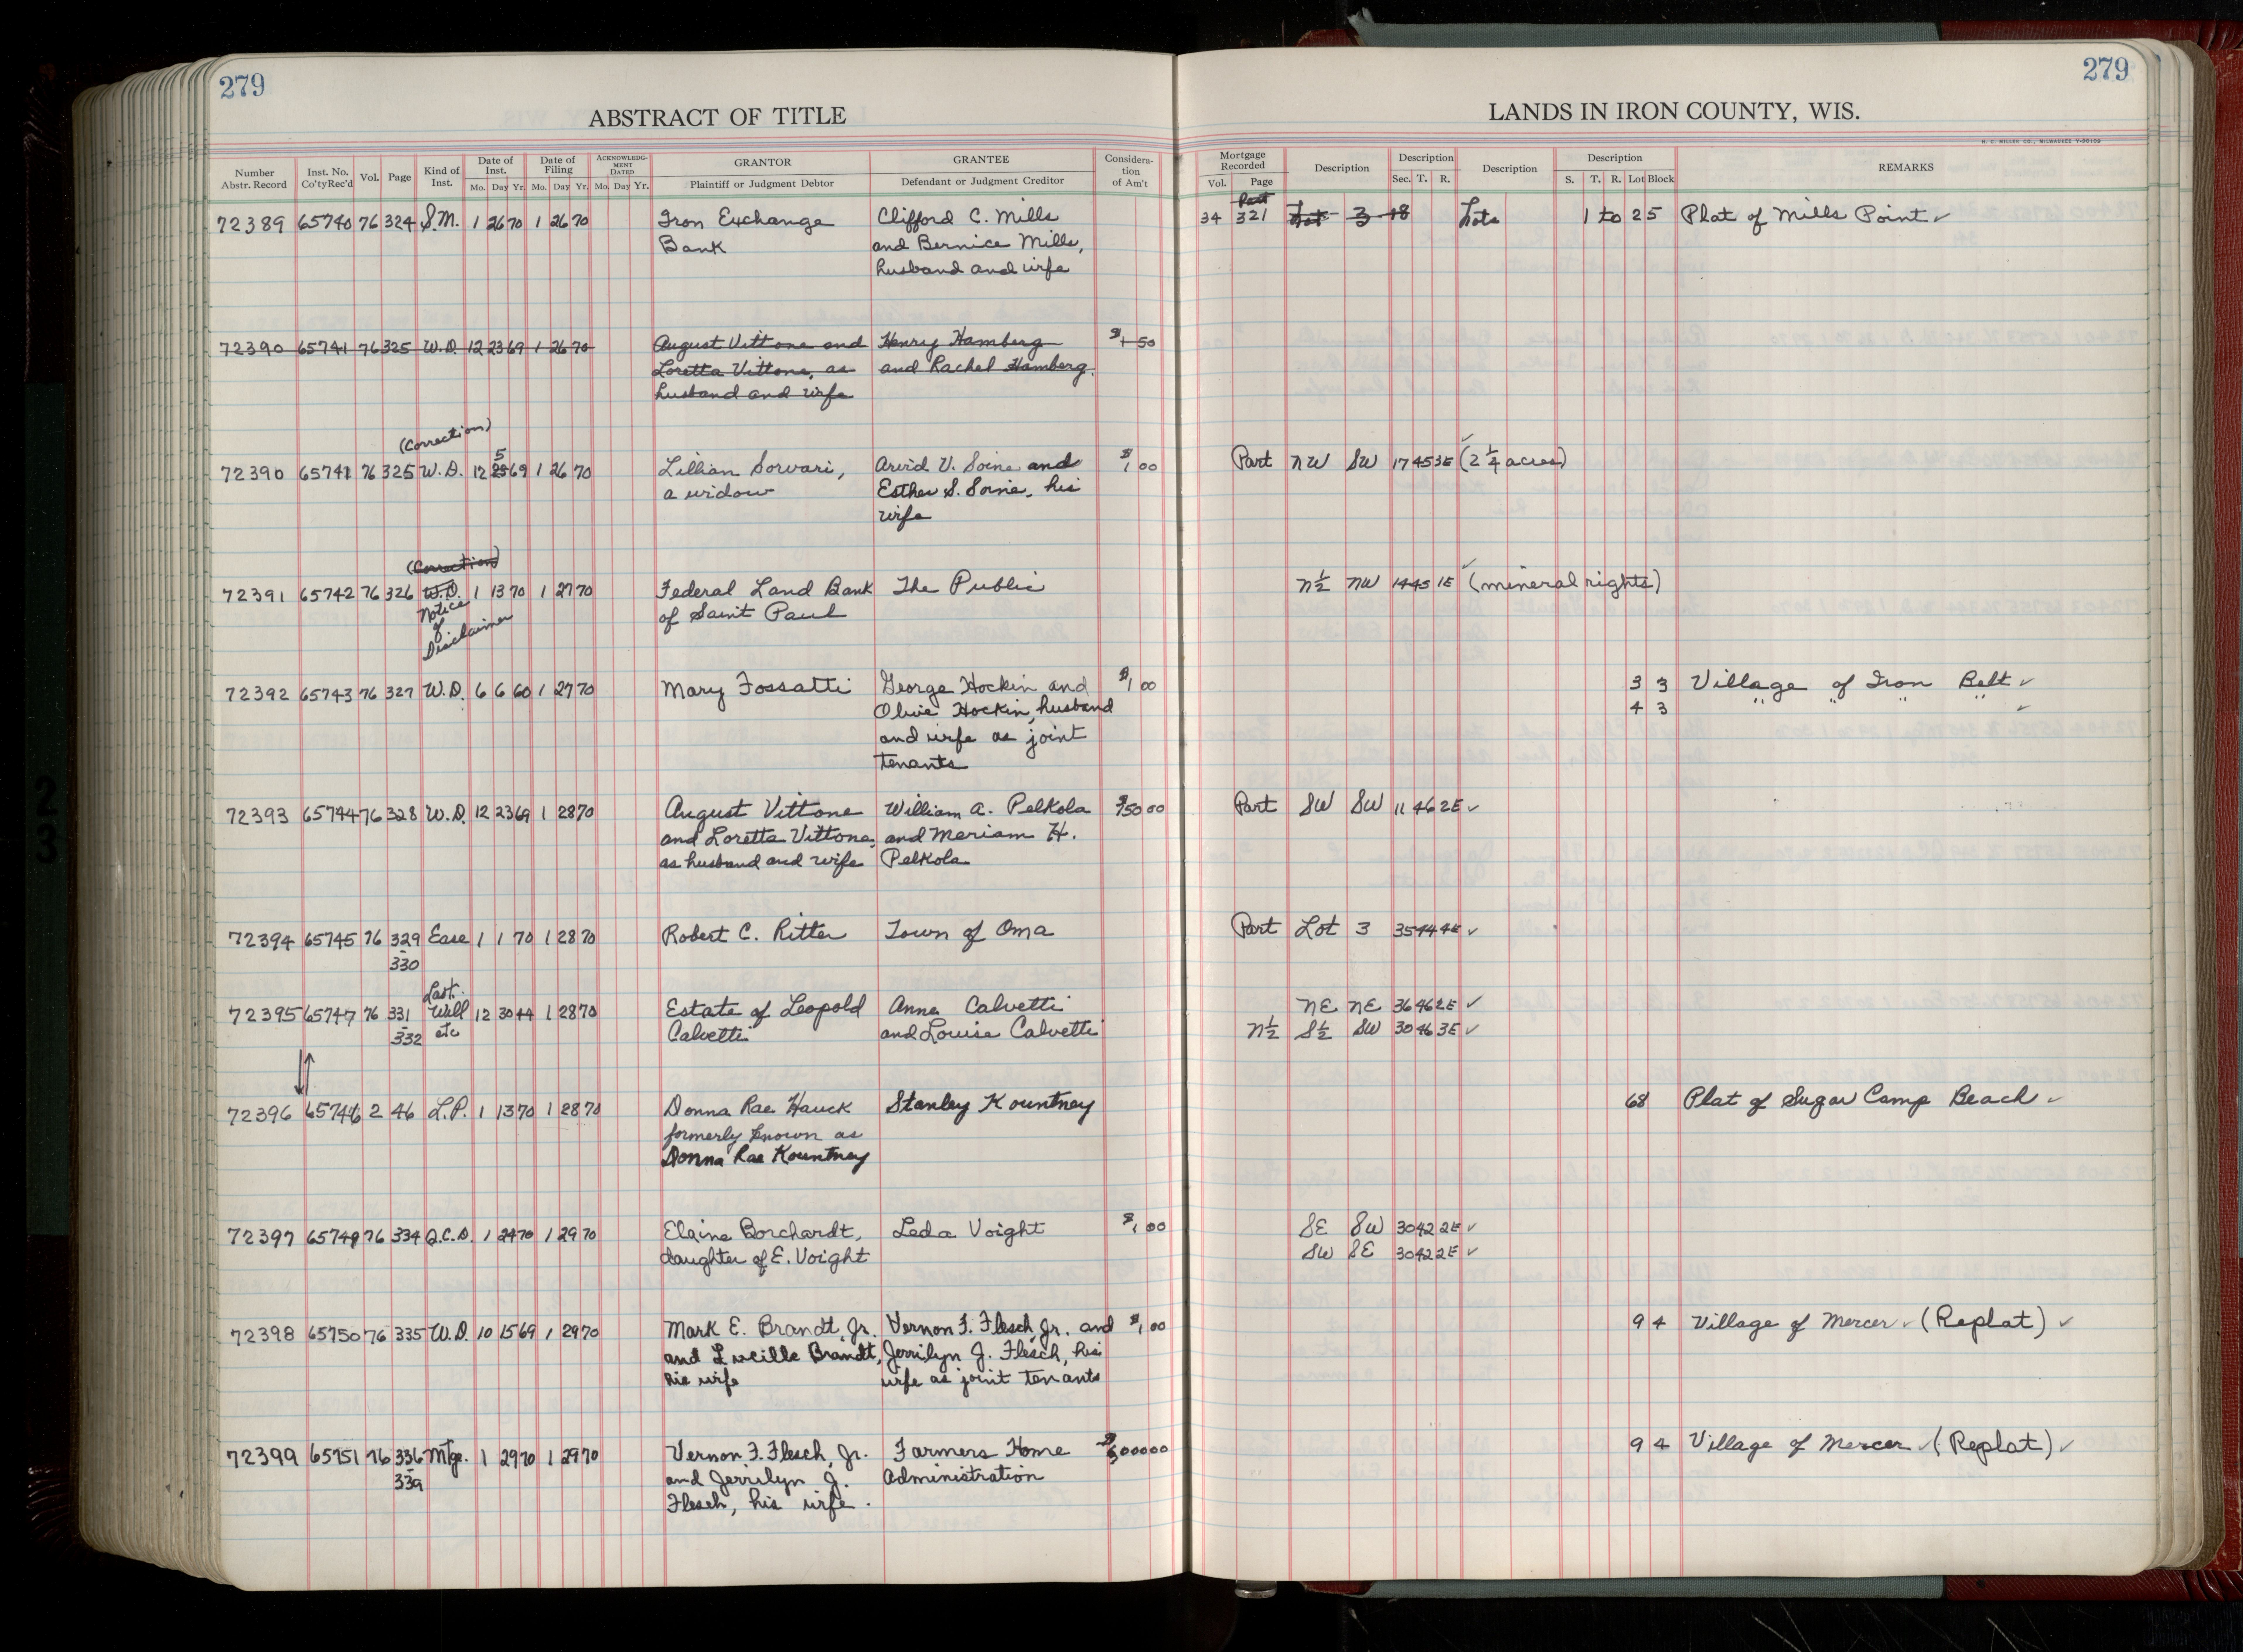 279
279
ABSTRACT OF TITLE
LANDS IN IRON COUNTY, WIS.
H. C. MILLER CO., MILWAUKEE
Number Abstr. Record Inst. No. Co'ty Rec'd Vol. Page Kind of Inst. Date of Inst. Mo. Day Yr. Date of Filing Mo. Day Yr. ACKNOWLEDGMENT DATED Mo. Day Yr. GRANTOR Plaintiff or Judgment Debtor GRANTEE Defendant or Judgment Creditor Consideration of Am't
Mortgage Recorded Vol. Page Description Description Sec. T. R. Description Description S. T. R. Lot Block REMARKS
Part
72389 65740 76 324 S.M. 1 26 70 1 26 70 Iron Exchange Clifford C. Mills 34 321 Lot 3 18 Lots 1 to 2 5 Plat of Mills Point ✓
Bank and Bernice Mills,
husband and wife
72390 65741 76 325 W.D. 12 23 69 1 26 70 August Vittone and Henry Hamberg $1 50
Loretta Vittone, as and Rachel Hamberg.
husband and wife
(Correction)
5
72390 65741 76 325 W.D. 12 69 1 26 70 Lillian Sorvari, Arvid V. Soine and $1 00 Part NW SW 17 45 3E (2 1/4 acres) ✓
a widow Esther S. Soine, his
wife
(Correction)
72391 65742 76 326 W.D. 1 13 70 1 27 70 Federal Land Bank The Public N½ NW 14 45 1E (mineral rights) ✓
Notice of Saint Paul
of
Disclaimer
72392 65743 76 327 W.D. 6 6 60 1 27 70 Mary Fossatti George Hockin and $1 00 3 3 Village of Iron Belt ✓
Olive Hockin, husband 4 3 " " " ✓
and wife as joint
tenants
72393 65744 76 328 W.D. 12 23 69 1 28 70 August Vittone William A. Pelkola $750 00 Part SW SW 11 46 2E ✓
and Loretta Vittone, and Meriam H.
as husband and wife Pelkola
72394 65745 76 329 Ease 1 1 70 1 28 70 Robert C. Ritter Town of Oma Part Lot 3 35 44 4E ✓
-330
Last
72395 65747 76 331 Will 12 30 44 1 28 70 Estate of Leopold Anna Calvetti NE NE 36 46 2E ✓
-332 etc Calvetti and Louise Calvetti N½ S½ SW 30 46 3E ✓
72396 65746 2 46 L.P. 1 13 70 1 28 70 Donna Rae Hauck Stanley Kountney 68 Plat of Sugar Camp Beach ✓
formerly known as
Donna Rae Kountney
72397 65749 76 334 Q.C.D. 1 24 70 1 29 70 Elaine Borchardt, Leda Voight $1 00 SE SW 30 42 2E ✓
daughter of E. Voight SW SE 30 42 2E ✓
72398 65750 76 335 W.D. 10 15 69 1 29 70 Mark E. Brandt, Jr. Vernon F. Flesch, Jr. and $1 00 9 4 Village of Mercer ✓ (Replat) ✓
and Lucille Brandt, Jerrilyn J. Flesch, his
his wife wife as joint tenants
72399 65751 76 336 Mtge. 1 29 70 1 29 70 Vernon F. Flesch, Jr. Farmers Home 9 4 Village of Mercer ✓ (Replat) ✓
-339 and Jerrilyn J. Administration
Flesch, his wife.